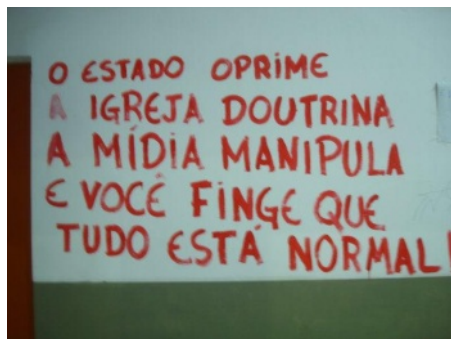 O ESTADO OPRIME
A IGREJA DOUTRINA
A MÍDIA MANIPULA
E VOCÊ FINGE QUE
TUDO ESTÁ NORMAL!